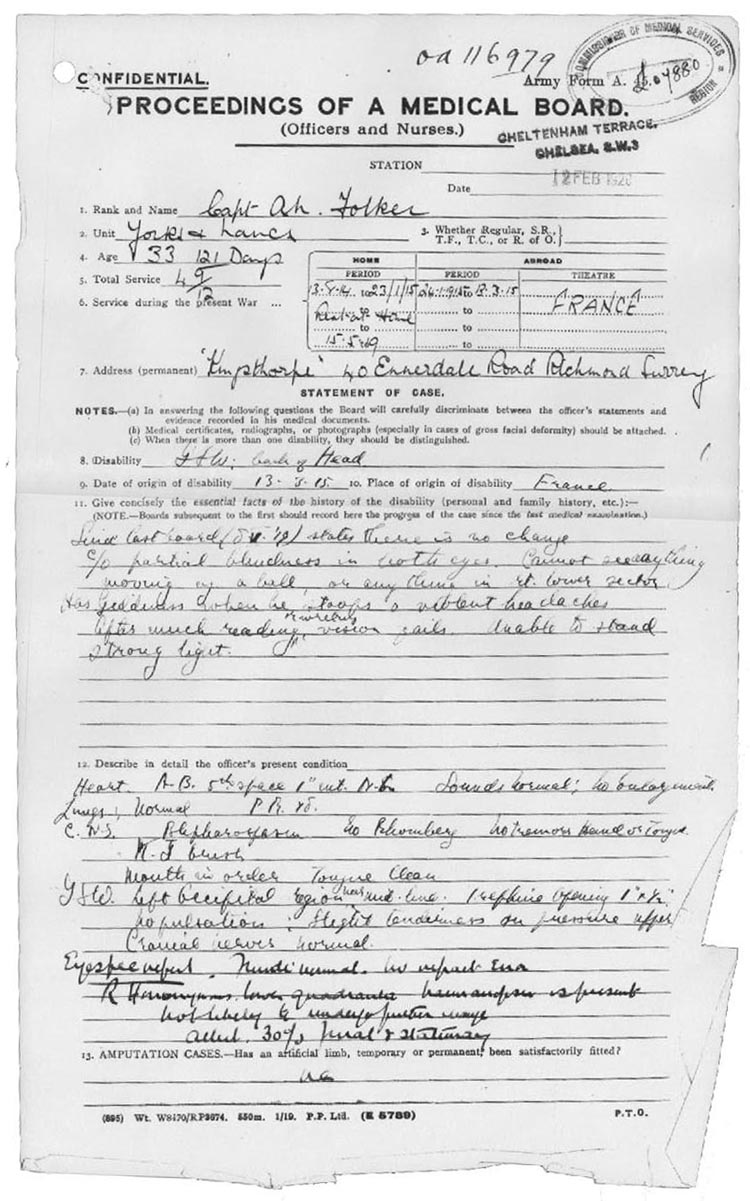 oa 116979
COMMISSIONER OF MEDICAL SERVICES
REGION
CONFIDENTIAL.
Army Form A. 45.
PROCEEDINGS OF A MEDICAL BOARD.
(Officers and Nurses.)
CHELTENHAM TERRACE,
CHELSEA, S.W.3
STATION
12 FEB 1920
Date
1. Rank and Name Capt A.H. Folker
2. Unit Yorks & Lancs
3. Whether Regular, S.R., T.F., T.C., or R. of O.
4. Age 33 121 Days
5. Total Service 4 9/12
6. Service during the present War ...
HOME ABROAD
PERIOD PERIOD THEATRE
13.8.14 to 23/1/15 to 13.3.15 FRANCE
to to
to to
15.5.19 to
7. Address (permanent) 'Kingsthorpe' 40 Ennerdale Road Richmond Surrey
STATEMENT OF CASE.
NOTES.—(a) In answering the following questions the Board will carefully discriminate between the officer's statements and
evidence recorded in his medical documents.
(b) Medical certificates, radiographs, or photographs (especially in cases of gross facial deformity) should be attached.
(c) When there is more than one disability, they should be distinguished.
8. Disability G.S.W. back of Head
9. Date of origin of disability 13.3.15 10. Place of origin of disability France
11. Give concisely the essential facts of the history of the disability (personal and family history, etc.):—
(NOTE.—Boards subsequent to the first should record here the progress of the case since the last medical examination.)
Since last board states there is no change
c/o partial blindness in both eyes. Cannot see anything
moving as a ball, or anything in rt. lower sector.
Has Giddiness when he stoops & violent headaches
After much reading or writing, vision fails. Unable to stand
strong light.
12. Describe in detail the officer's present condition
Heart. A.B. 5th space 1" int. N.L. Sounds normal; no enlargement.
Lungs; Normal P.R.
C.N.S. Blepharospasm No Rhomberg no tremors Hand or Tongue
K.J. brisk
Mouth in order Tongue Clean
GSW. Left Occipital region near mid-line. Trephine opening
no pulsation; Slight tenderness on pressure upper
Cranial nerves normal.
Eye spec report. Fundi normal. No refract Error
R Homonymous lower quadrantic hemianopsia is present
not likely to undergo further change
30% final & stationary
13. AMPUTATION CASES.—Has an artificial limb, temporary or permanent, been satisfactorily fitted?
na
(895) Wt. W8470/RP3674. 550m. 1/19. P.P. Ltd. (E 5789)
P.T.O.